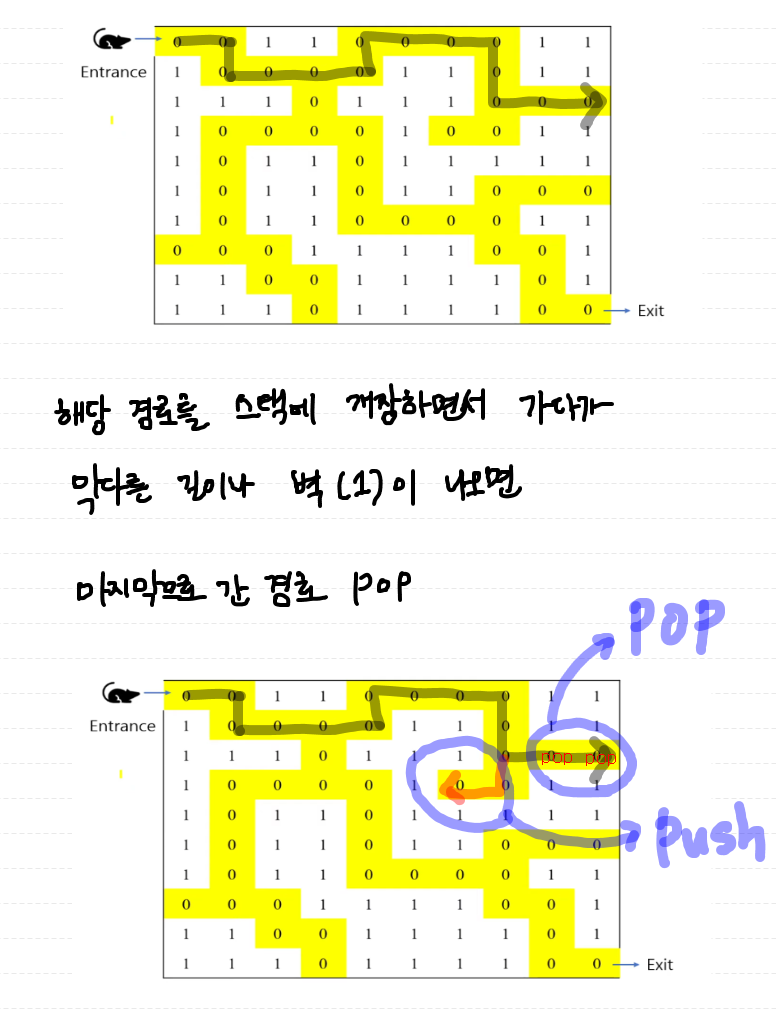 0 0 1 1 0 0 0 0 1 1
Entrance 1 0 0 0 0 1 1 0 1 1
1 1 1 0 1 1 1 0 0 0
1 0 0 0 0 1 0 0 1 1
1 0 1 1 0 1 1 1 1 1
1 0 1 1 0 1 1 0 0 0
1 0 1 1 0 0 0 0 1 1
0 0 0 1 1 1 1 0 0 1
1 1 0 0 1 1 1 1 0 1
1 1 1 0 1 1 1 1 0 0 Exit
해당 경로를 스택에 저장하면서 가다가
막다른 길이나 벽(1)이 나오면
마지막으로 간 경로 pop
pop
0 0 1 1 0 0 0 0 1 1
Entrance 1 0 0 0 0 1 1 0 1 1
1 1 1 0 1 1 1 0 pop pop
1 0 0 0 0 1 0 0 1 1
1 0 1 1 0 1 1 1 1 1
push
1 0 1 1 0 1 1 0 0 0
1 0 1 1 0 0 0 0 1 1
0 0 0 1 1 1 1 0 0 1
1 1 0 0 1 1 1 1 0 1
1 1 1 0 1 1 1 1 0 0 Exit